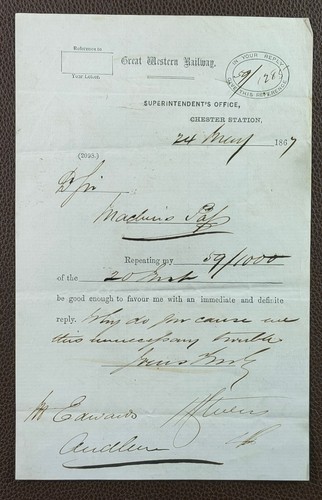 Reference to
Your Letters
Great Western Railway.
IN YOUR REPLY
GIVE THIS REFERENCE
59/
SUPERINTENDENT'S OFFICE,
CHESTER STATION,
24 May 1867
(2098.)
Dr Sir
Machins
Repeating my 59/1000
of the 20 Inst
be good enough to favour me with an immediate and definite
reply. Why do you cause me
this unnecessary trouble
Yours truly
Mr Edwards
Audlem